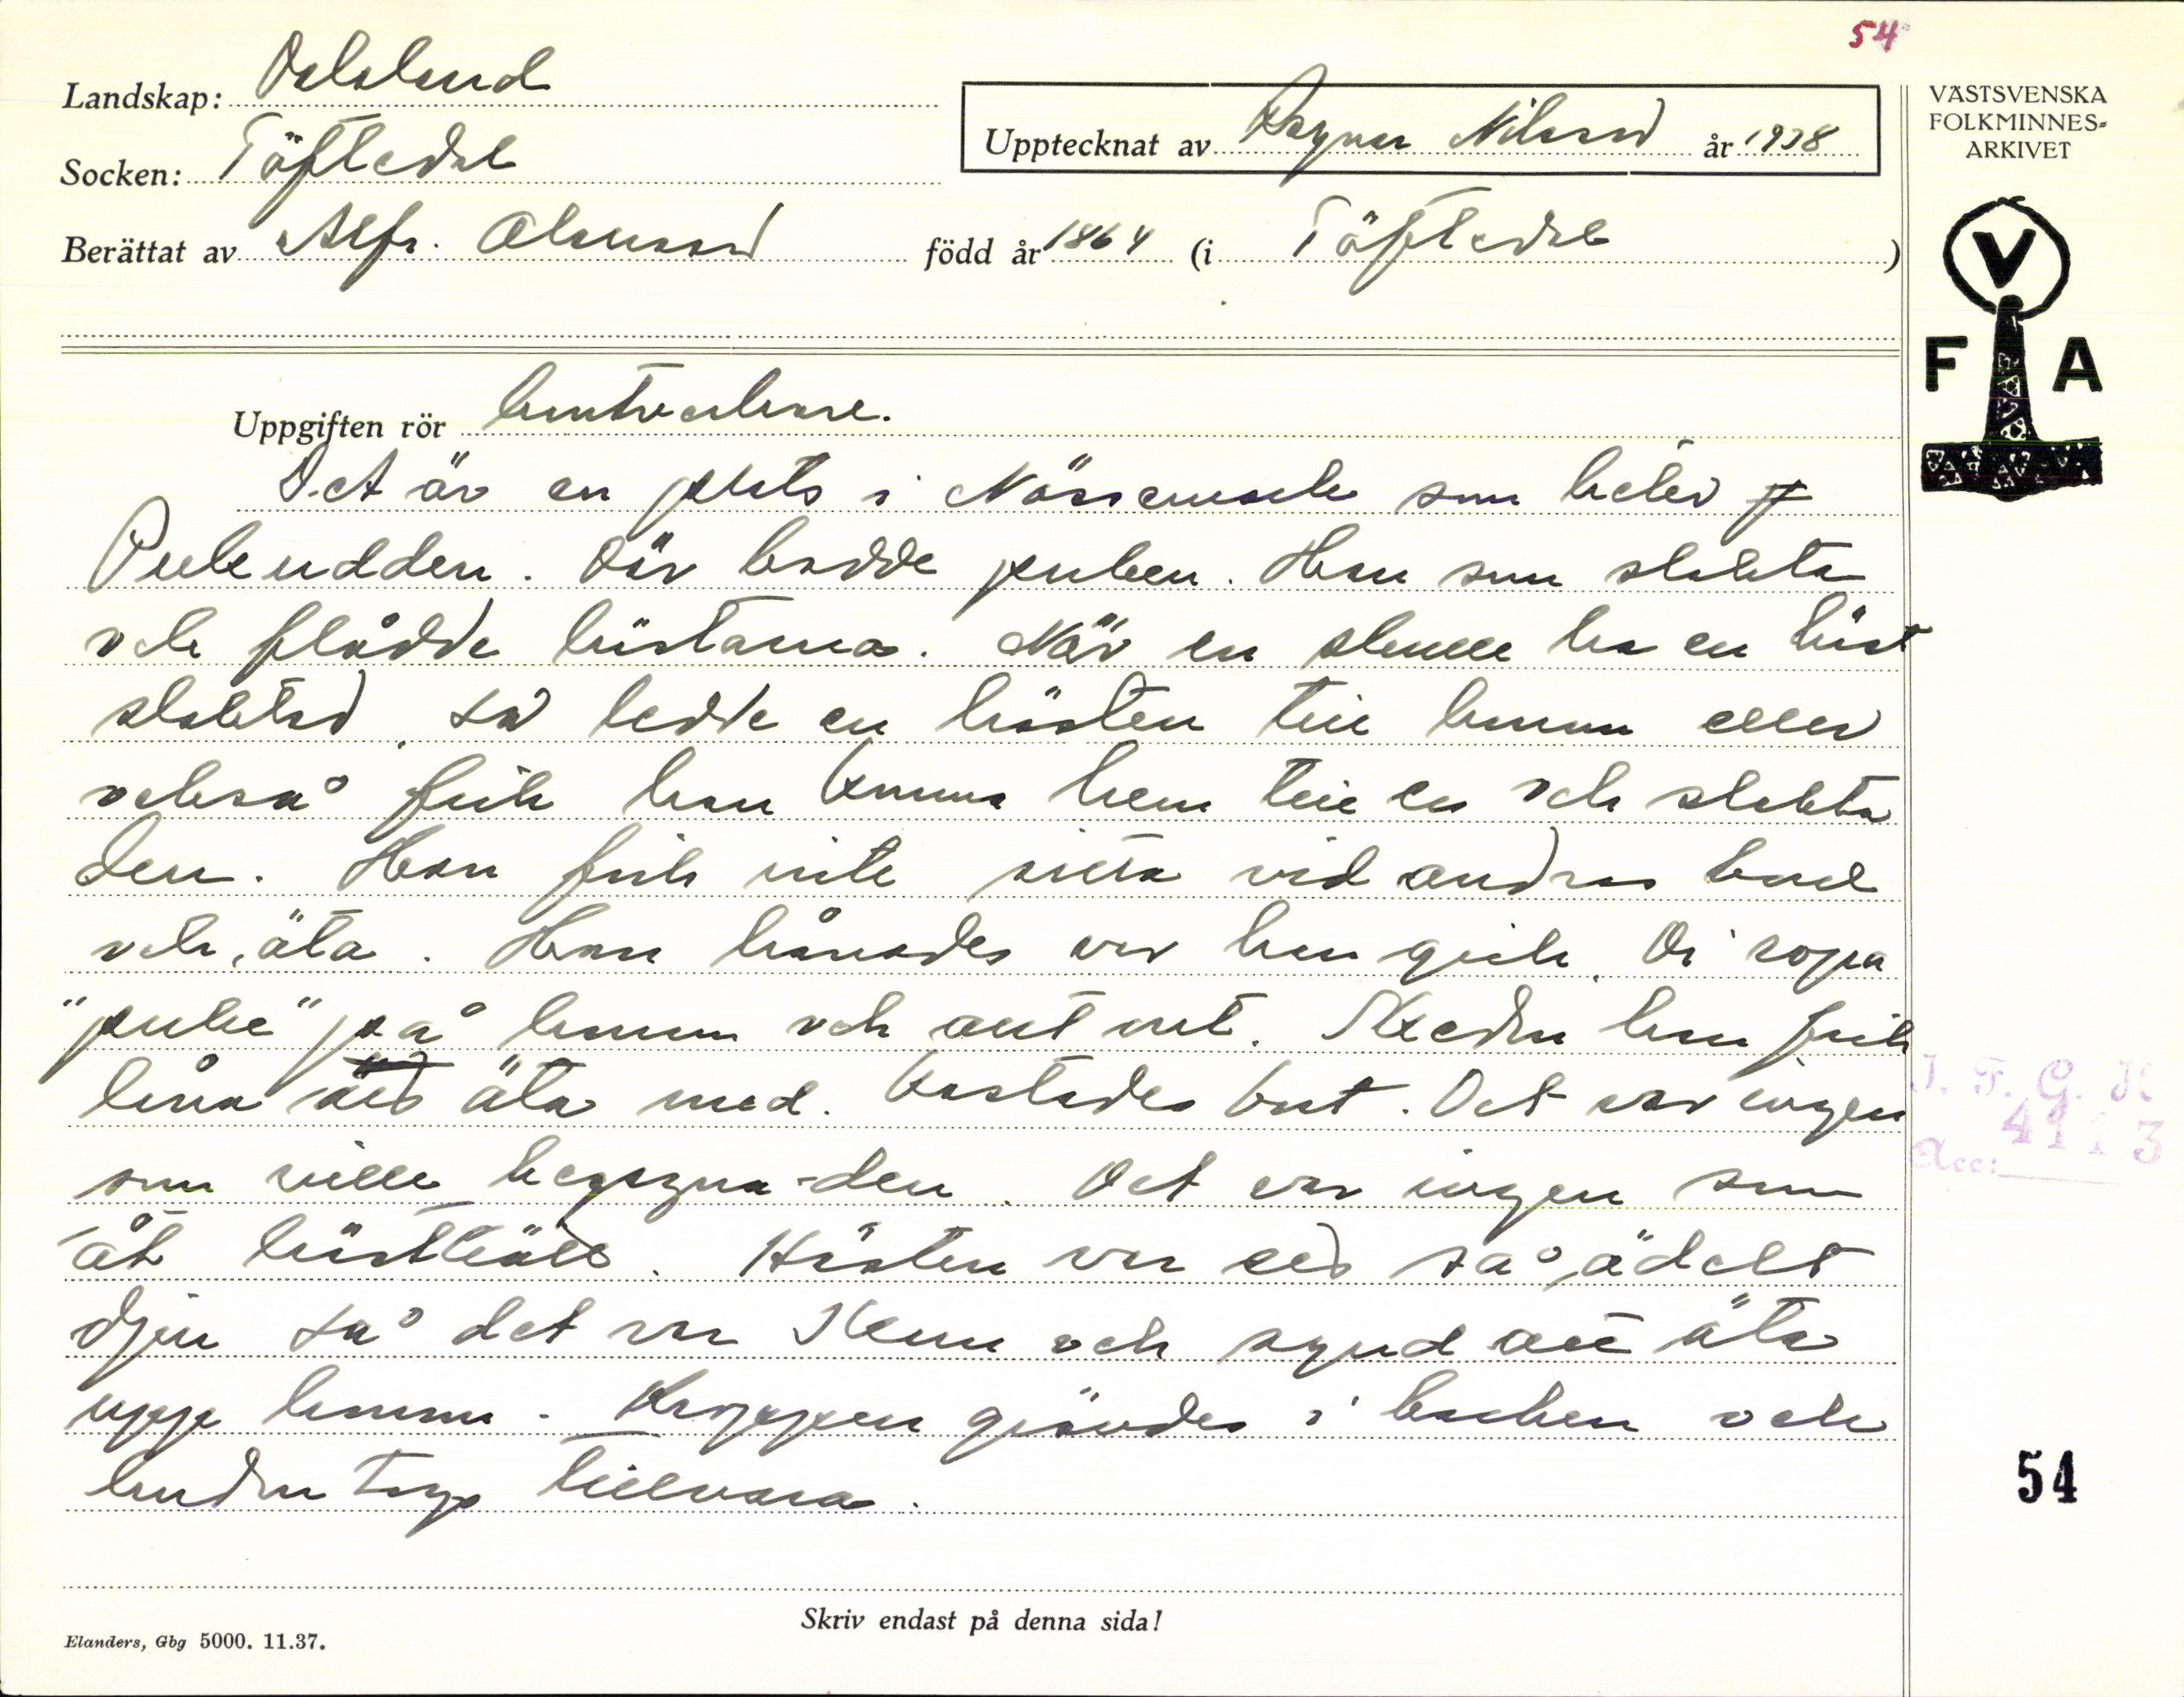 54
Landskap: Dalsland
Socken: Töftedal
Upptecknat av Ragnar Nilsson år 1938
Berättat av Alfr. Olausson född år 1864 (i Töftedal)
VÄSTSVENSKA
FOLKMINNES-
ARKIVET
V
F A
Uppgiften rör hästvakare.
Det är en plats i Nössemark som heter
Pukeudden. Där bodde puken. Han som slakta
och flådde hästarna. När en skulle ha en häst
slaktad, så ledde en hästen till honom eller
också fick han komma hem till en och slakta
den. Han fick inte sitta vid andras bord
och äta. Han hånades var han gick. Di ropa
"puke" på honom och allt met. Skeden han fick
låna äta med. kastades bort. Det var ingen
som ville begagna den. Det var ingen som
åt hästkött. Hästen var ett så ädelt
djur så det var skam och synd att äta
upp honom. Kroppen grävdes i backen och
huden togs tillvara.
I. F. G. H
4113
Acc:
54
Skriv endast på denna sida!
Elanders, Gbg 5000. 11.37.